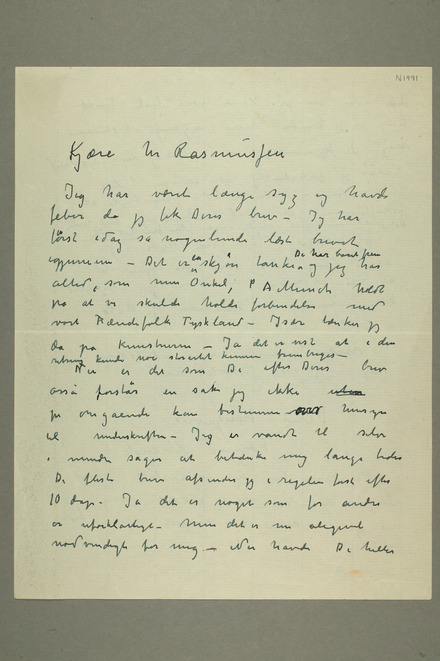 N 1991
Kjære Hr Rasmussen
Jeg har været længe syg og havde
feber da jeg fik Deres brev – Jeg har
først idag sa nogenlunde læst brevet
igjennem – Det er en skjøn tanke De har havt frem og jeg har
altid, som min Onkel, P A Munch holdt
på at vi skulde holde forbindelse med
vort Frændefolk Tyskland – Især tænker jeg
da på kunstnerne – Ja det er vist at i den
retning kunde noe stort kunne frembringes –
Nu er det som De efter Deres brev
også forstår en sak jeg ikke uten
per omgående kan bestemme over hensyn
til underskriften – Jeg er vandt til selv
i mindre sager at betænke mig længe
De fleste breve afsender jeg i regelen først efter
10 dage. Ja det er noget som for andre
er uforklarligt – men det er nu alligevel
nødvendigt for mig –  havde De heller